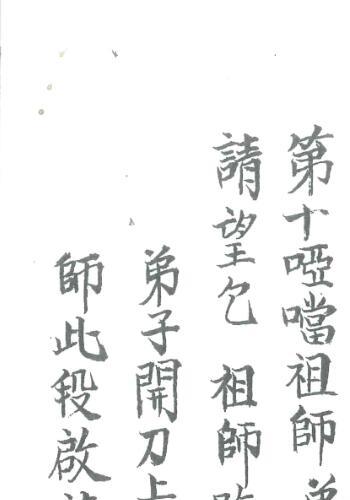 第十啞噹祖師弟
請望乞 祖師
弟子開刀上
師此段啟